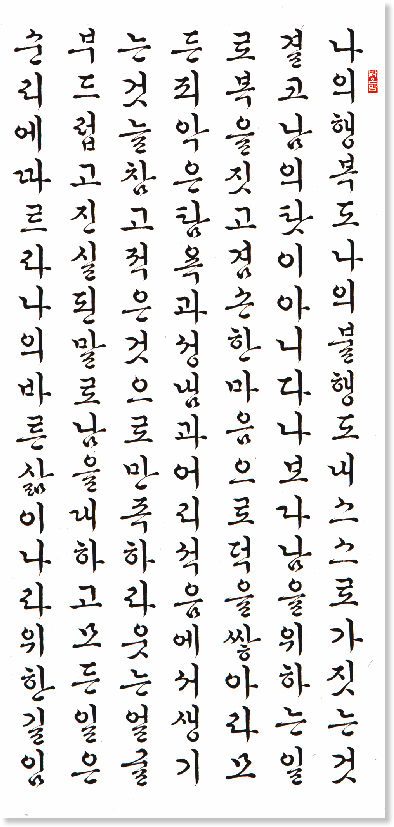 나의행복도나의불행도내스스로가짓는것
결고남의탓이아니다나보다남을위하는일
로복을짓고겸손한마음으로덕을쌓아라모
든죄악은탐욕과성냄과어리석음에서생기
는것늘참고적은것으로만족하라웃는얼굴
부드럽고진실된말로남을대하고모든일은
순리에따르라나의바른삶이나라위한길임